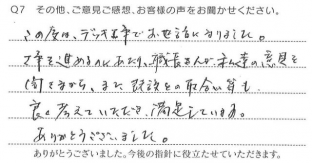 Q7 その他、ご意見ご感想、お客様の声をお聞かせください。
この度は、デッキ工事でお世話になりました。
工事を進めるにあたり、職長さんが、私達の意見を
聞きながら、また既設との取合い等も
良く考えていただき、満足しています。
ありがとうございました。
ありがとうございました。今後の指針に役立たせていただきます。